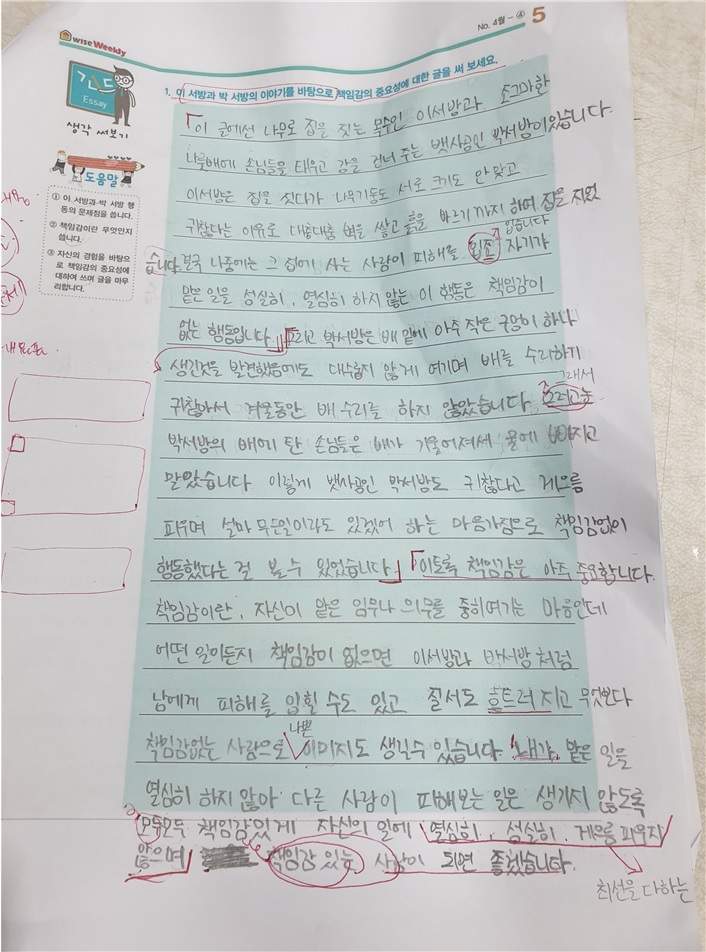 wise Weekly
No. 4월 - ④ 5
간드
Essay
생각 써보기
도움말
① 이 서방과 박 서방 행
동의 문제점을 씁니다.
② 책임감이란 무엇인지
씁니다.
③ 자신의 경험을 바탕으
로 책임감의 중요성에
대하여 쓰며 글을 마무
리합니다.
1. 이 서방과 박 서방의 이야기를 바탕으로 책임감의 중요성에 대한 글을 써 보세요.
이 글에선 나무로 집을 짓는 목수인 이서방과 조그마한
나룻배에 손님들을 태우고 강을 건너 주는 뱃사공인 박서방이있습니다.
이서방은 집을 짓다가 나무기둥도 서로 크기도 안맞고
귀찮다는 이유로 대충대충 벽을 쌓고 흙을 바르기까지 하여 집을 지었
습니다. 결국 나중에는 그 집에 사는 사람이 피해를 입죠 자기가
입습니다
맡은 일을 성실히, 열심히 하지 않는 이 행동은 책임감이
없는 행동입니다. 그리고 박서방은 배 밑에 아주 작은 구멍이 하나
생긴것을 발견했음에도 대수롭지 않게 여기며 배를 수리하기
그래서
귀찮아서 겨울동안 배 수리를 하지 않았습니다. 그러고는
박서방의 배에 탄 손님들은 배가 기울어져서 물에 빠지고
말았습니다. 이렇게 뱃사공인 박서방도 귀찮다고 게으름
피우며 설마 무슨일이라도 있겠어 하는 마음가짐으로 책임감없이
행동했다는 걸 볼 수 있었습니다. 이토록 책임감은 아주 중요합니다.
책임감이란, 자신이 맡은 임무나 의무를 중히여기는 마음인데
어떤 일이든지 책임감이 없으면 이서방과 박서방처럼
남에게 피해를 입힐 수도 있고 질서도 흐트러 지고 무엇보다
나쁜
책임감없는 사람으로 이미지도 생길수 있습니다. 내가 맡은 일을
열심히 하지 않아 다른 사람이 피해보는 일은 생기지 않도록
모두모두 책임감있게 자신의 일에 열심히, 성실히, 게으름 피우지
않으며 책임감 있는 사람이 되면 좋겠습니다.
최선을 다하는